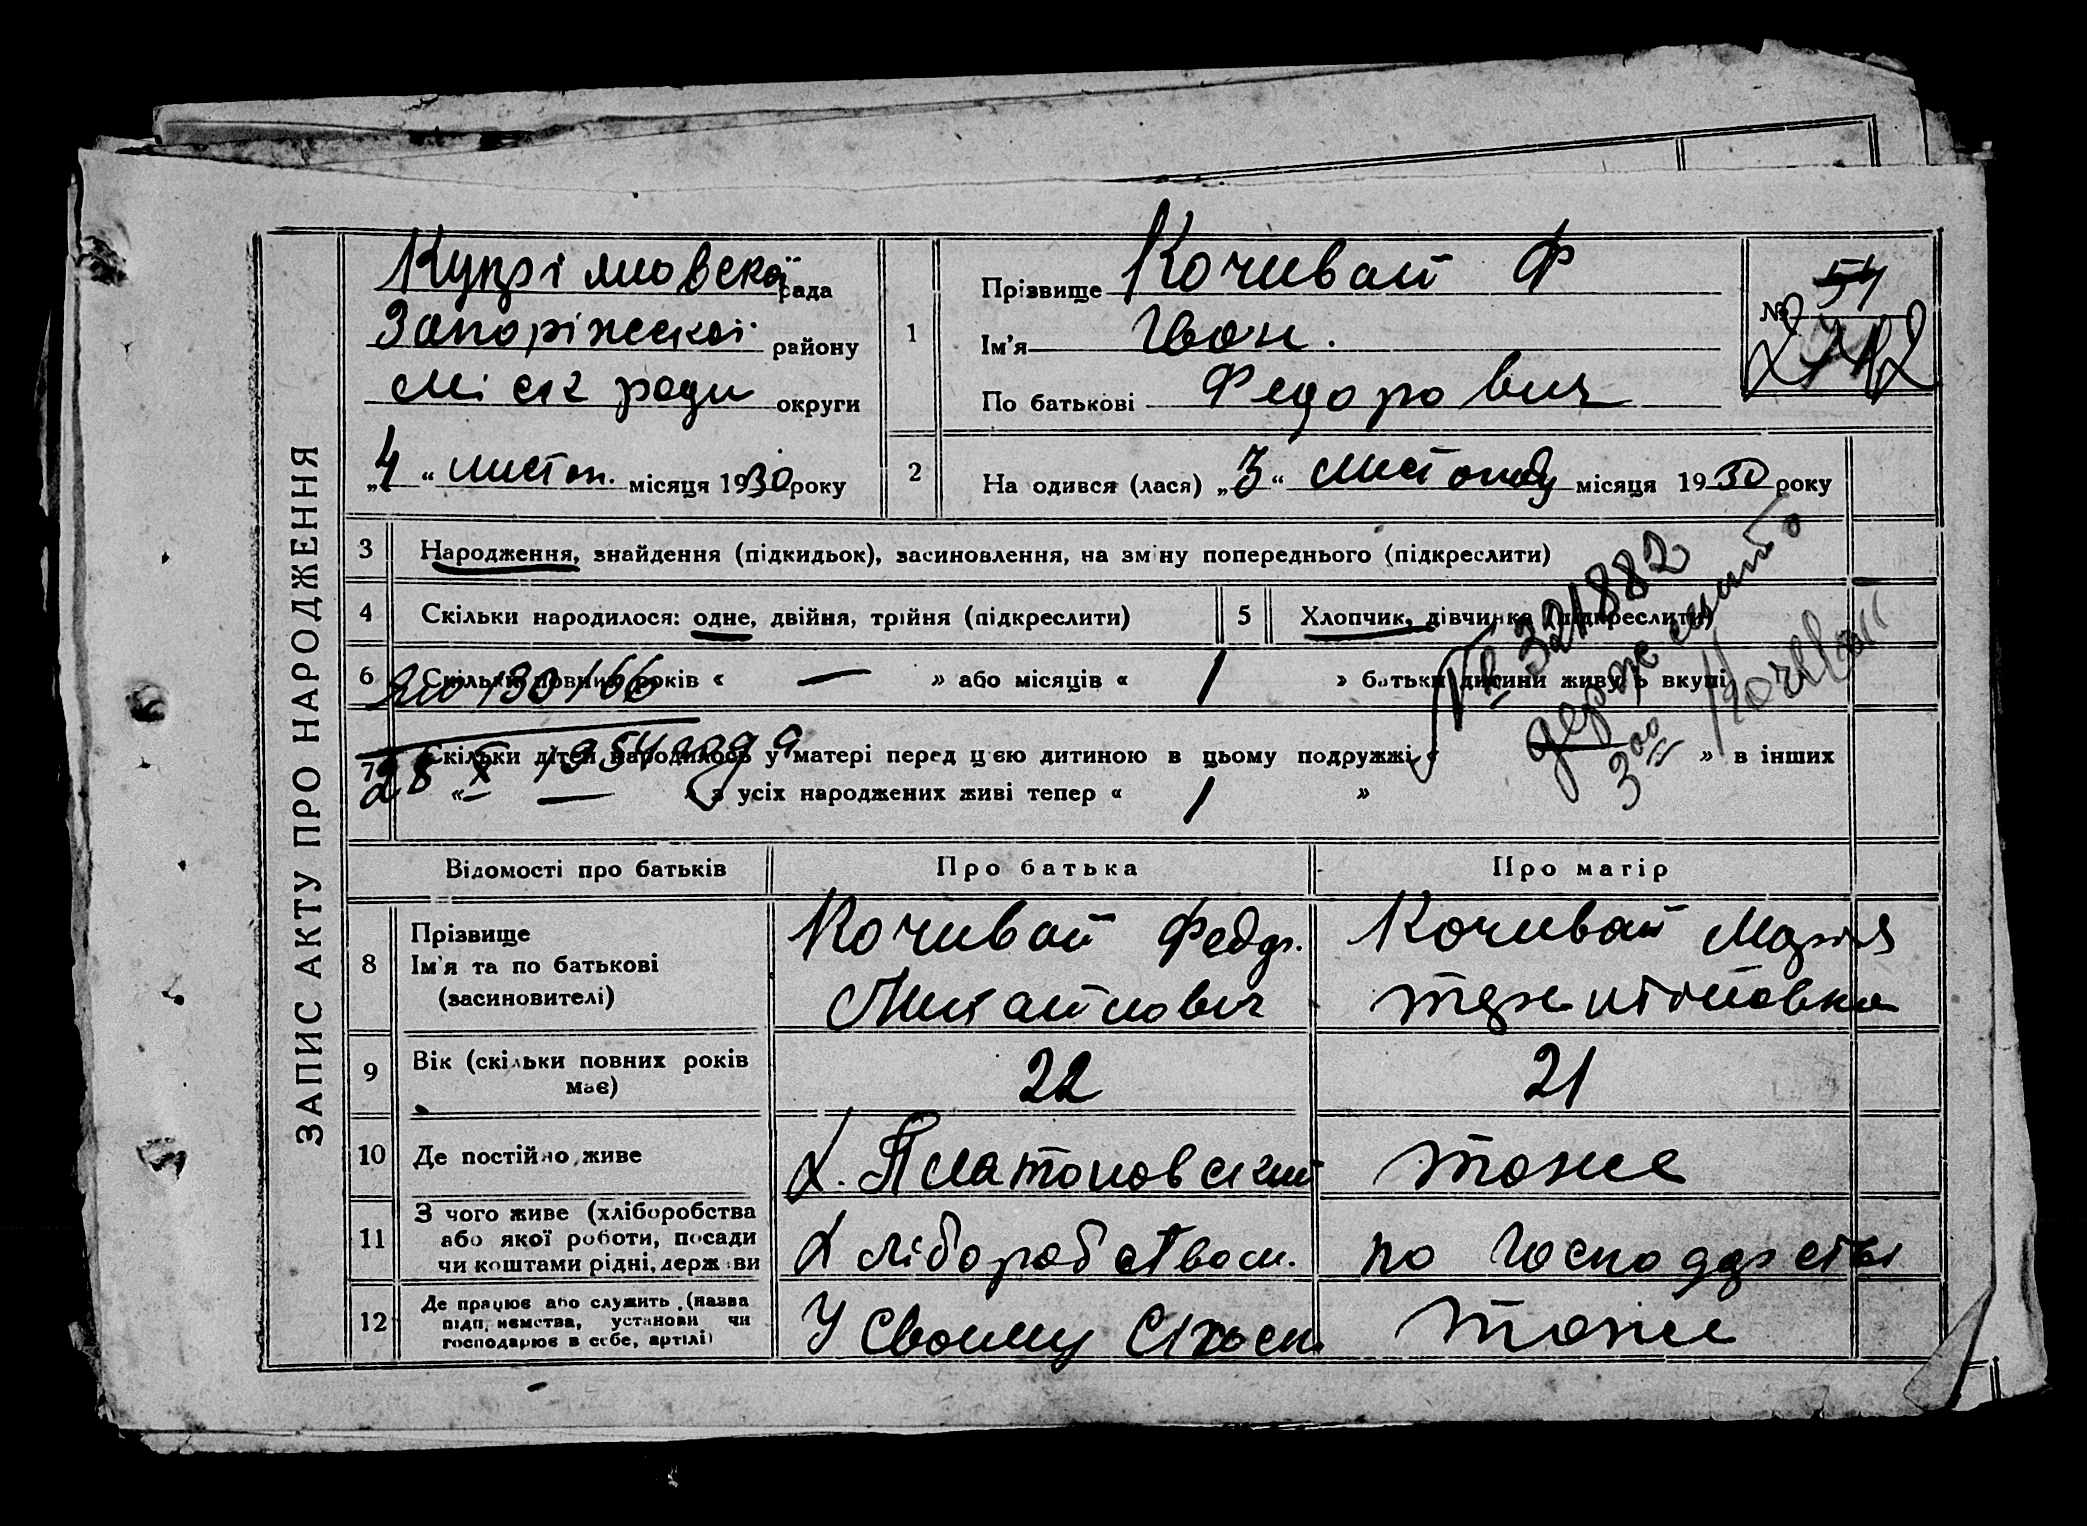 ЗАПИС АКТУ ПРО НАРОДЖЕННЯ
рада
Запоріжської району
Міск ради округи
„4“ листоп. місяця 1930 року
1
Прізвище Кочивай Ф
Ім'я Іван.
По батькові Федорович
№ 54
2742
2
На одився (лася) „3“ листопаду місяця 1930 року
3 Народження, знайдення (підкидьок), засиновлення, на зміну попереднього (підкреслити)
4 Скільки народилося: одне, двійня, трійня (підкреслити)
5 Хлопчик, дівчинка (підкреслити)
6 Скільки повних років « — » або місяців « 1 » батьки дитини живуть вкупі
7 Скільки дітей народилось у матері перед цією дитиною в цьому подружжі « — » в інших
« — » з усіх народжених живі тепер « 1 »
28 X 1954 года
№ 321882
Відомості про батьків
Про батька
Про матір
8 Прізвище
Ім'я та по батькові
(засиновителі)
Кочивай Федор.
Михайлович
Кочивай Марія
9 Вік (скільки повних років
має)
22
21
10 Де постійно живе
Х. Платоновский
тоже
11 З чого живе (хліборобства
або якої роботи, посади
чи коштами рідні, держави
Хліборобством.
по господарству
12 Де працює або служить (назва
підприємства, установи чи
господарює в себе, артілі)
У своему
тоже